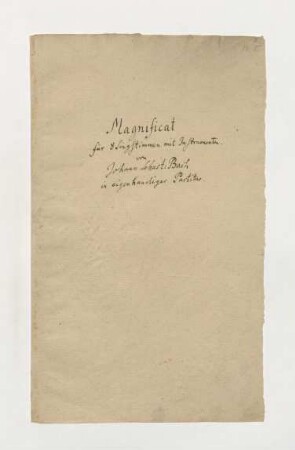 Magnificat
für 8 Singstimmen mit Instrumenten
von
Johann Sebast: Bach
in eigenhändiger Partitur.